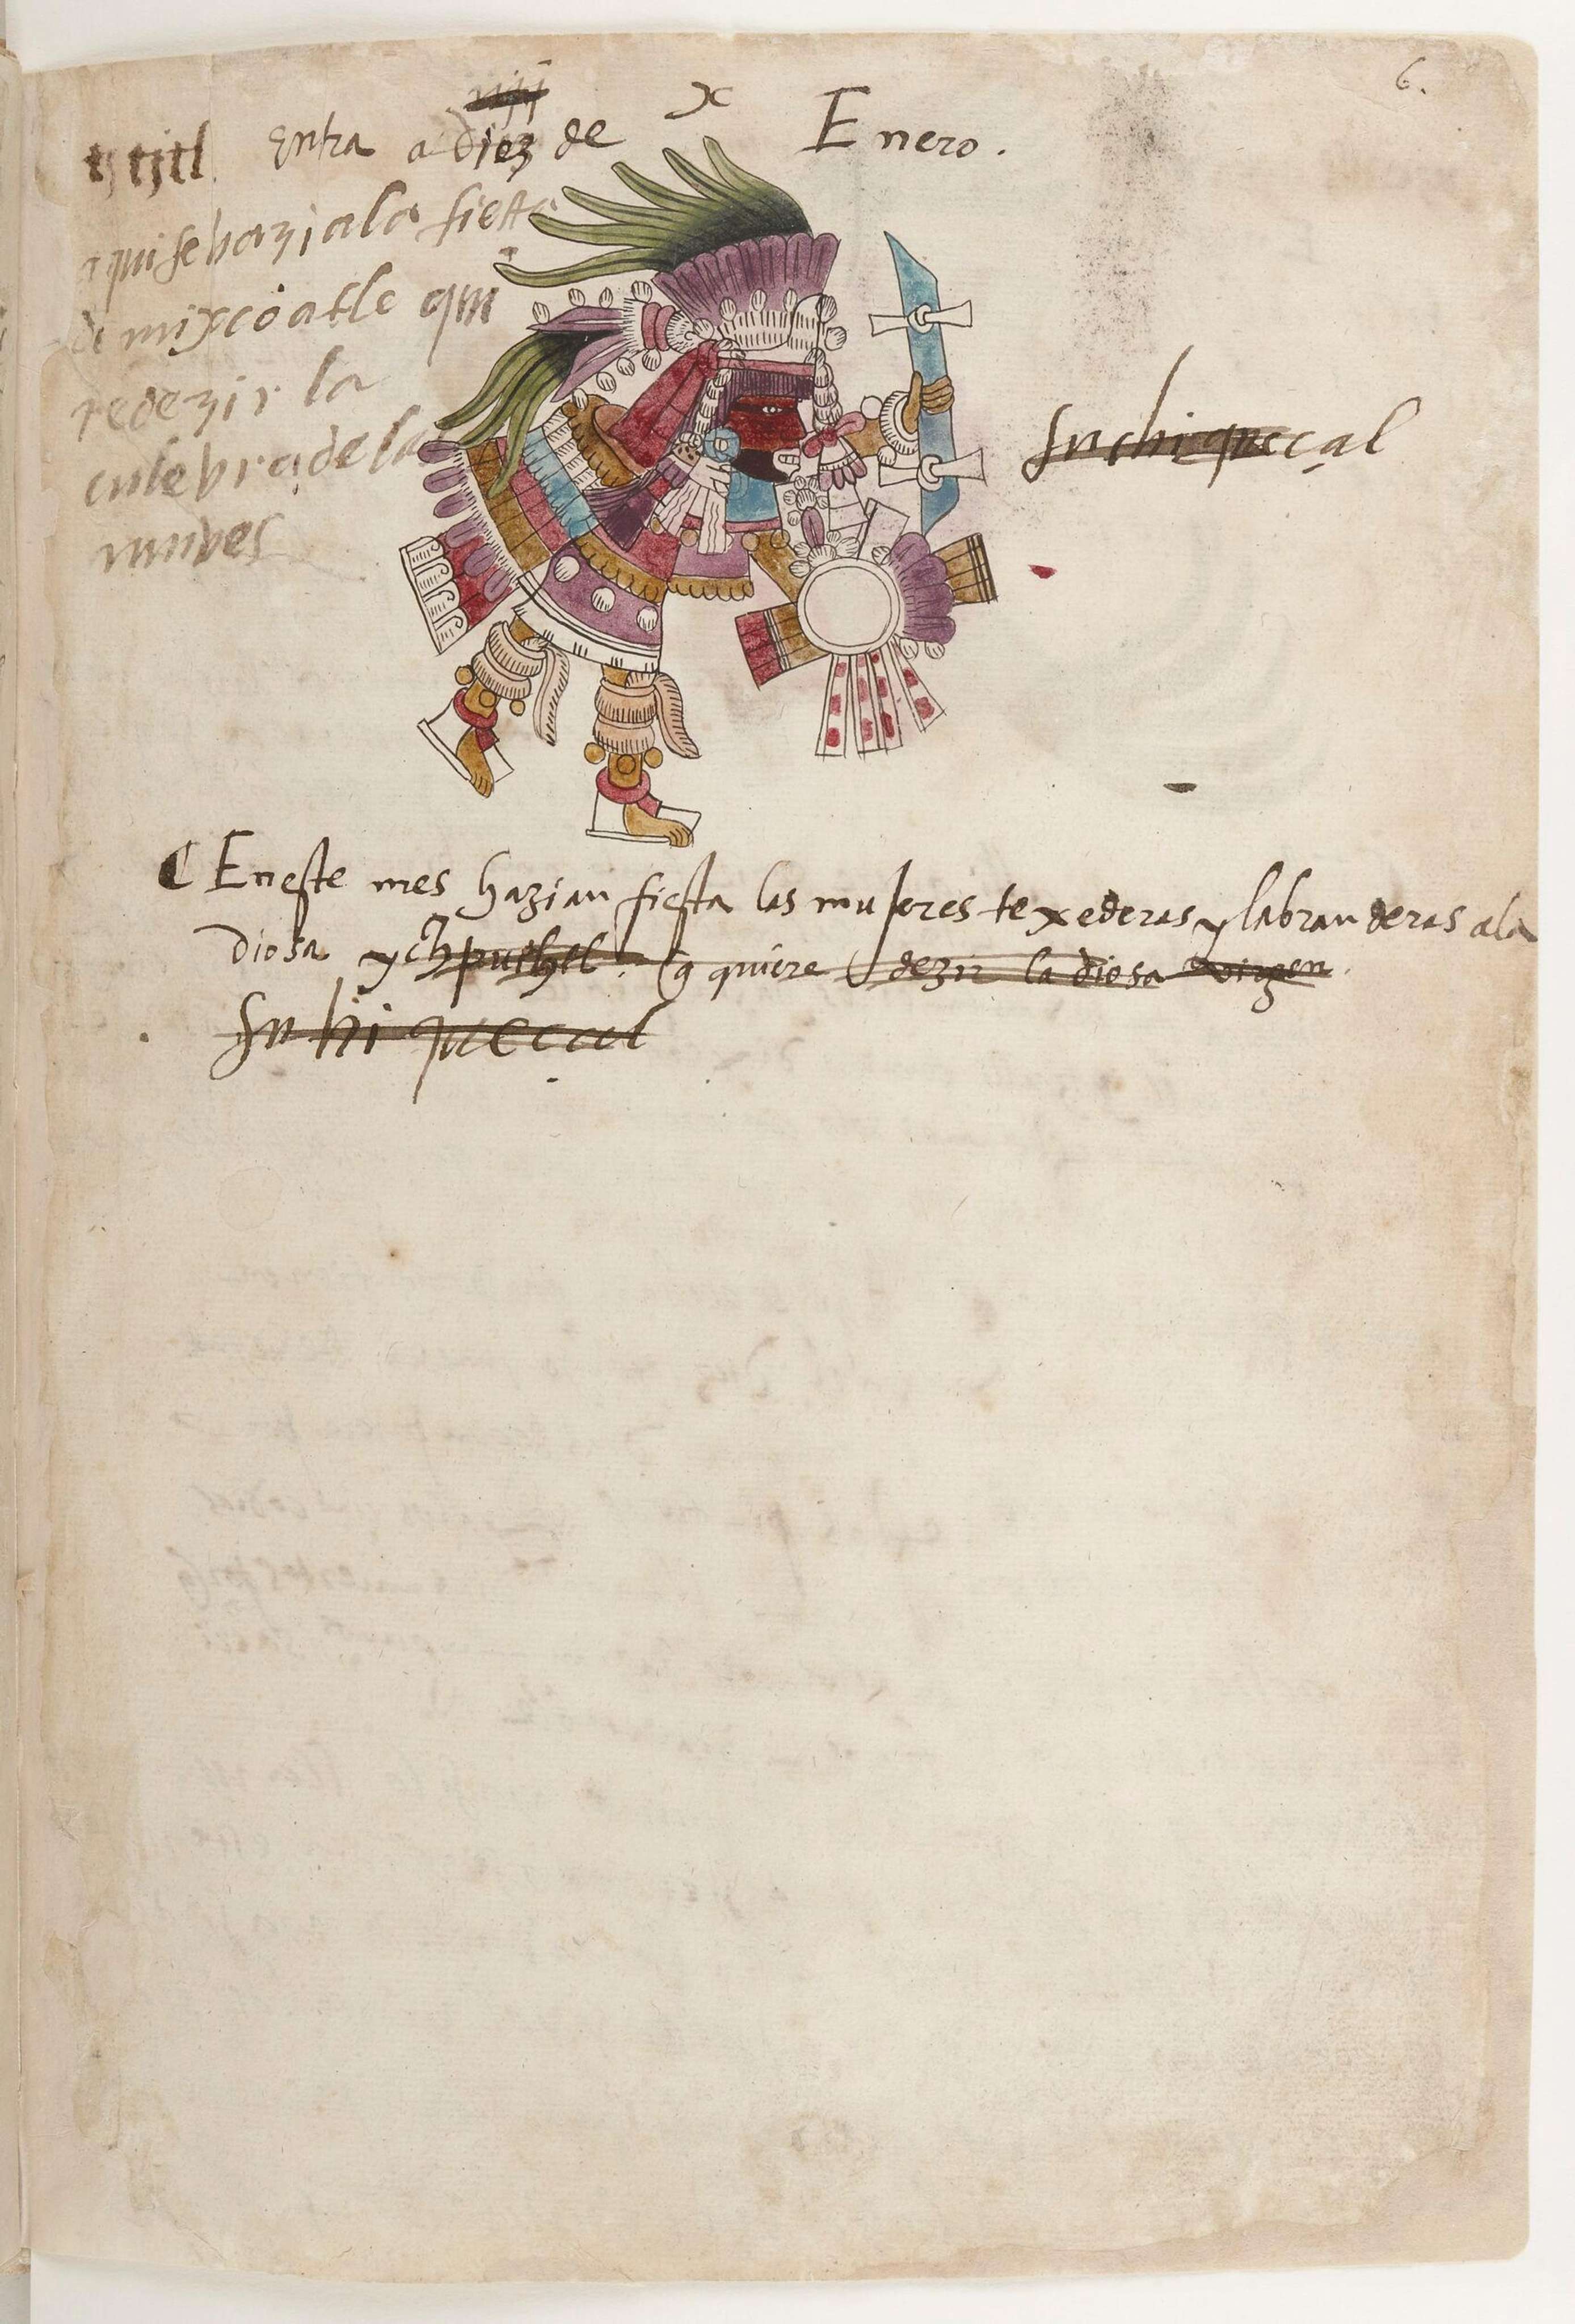 6.
iiij
x
tjtjtl entra a diez de Enero.
aqui se hazia la fiesta
de mixcoatle qui
re dezir la
culebra de las
nuves
suchiqueçal
En este mes hazian fiesta las mujeres texederas y labranderas ala
diosa ychpuchtl. q quiere dezir la diosa virgen.
suchiqueçal